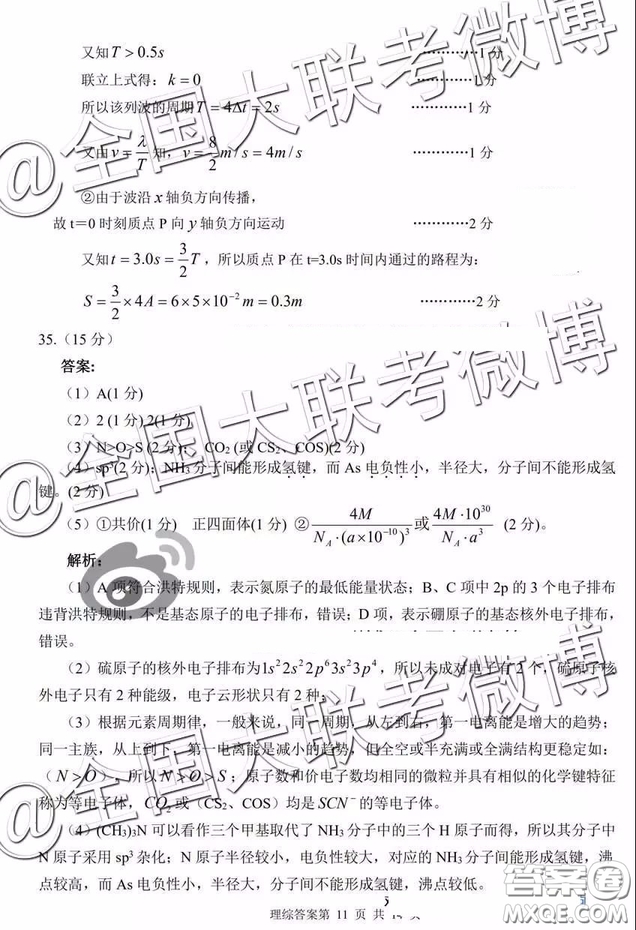 又知T > 0.5s …………1 分
联立上式得：k = 0 …………1 分
所以该列波的周期T = 4Δt = 2s …………1 分
又由 v = λ/T 知，v = 8/2 m/s = 4m/s …………1 分
②由于波沿 x 轴负方向传播，
故 t＝0 时刻质点 P 向 y 轴负方向运动 …………2 分
又知 t = 3.0s = 3/2 T，所以质点 P 在 t=3.0s 时间内通过的路程为：
S = 3/2 × 4A = 6×5×10⁻² m = 0.3m …………2 分
35.（15 分）
答案:
（1）A(1 分)
（2）2 (1 分) 2(1 分)
（3）N>O>S (2 分)； CO₂ (或 CS₂、COS)(2 分)
（4）sp³(2 分)；NH₃ 分子间能形成氢键，而 As 电负性小，半径大，分子间不能形成氢
键。(2 分)
（5）①共价(1 分) 正四面体(1 分) ② 4M/(N_A·(a×10⁻¹⁰)³) 或 4M·10³⁰/(N_A·a³) (2 分)。
解析:
（1）A 项符合洪特规则，表示氮原子的最低能量状态；B、C 项中 2p 的 3 个电子排布
违背洪特规则，不是基态原子的电子排布，错误；D 项，表示硼原子的基态核外电子排布，
错误。
（2）硫原子的核外电子排布为1s²2s²2p⁶3s²3p⁴，所以未成对电子有 2 个，硫原子核
外电子只有 2 种能级，电子云形状只有 2 种；
（3）根据元素周期律，一般来说，同一周期，从左到右，第一电离能是增大的趋势；
同一主族，从上到下，第一电离能是减小的趋势，但全空或半充满或全满结构更稳定如：
（N > O），所以 N > O > S；原子数和价电子数均相同的微粒并具有相似的化学键特征
称为等电子体，CO₂ 或（CS₂、COS）均是 SCN⁻ 的等电子体。
（4）(CH₃)₃N 可以看作三个甲基取代了 NH₃ 分子中的三个 H 原子而得，所以其分子中
N 原子采用 sp³ 杂化；N 原子半径较小，电负性较大，对应的 NH₃ 分子间能形成氢键，沸
点较高，而 As 电负性小，半径大，分子间不能形成氢键，沸点较低。
理综答案第 11 页 共
@全国大联考微博
@全国大联考微博
@全国大联考微博
答案圈
MXQE.COM